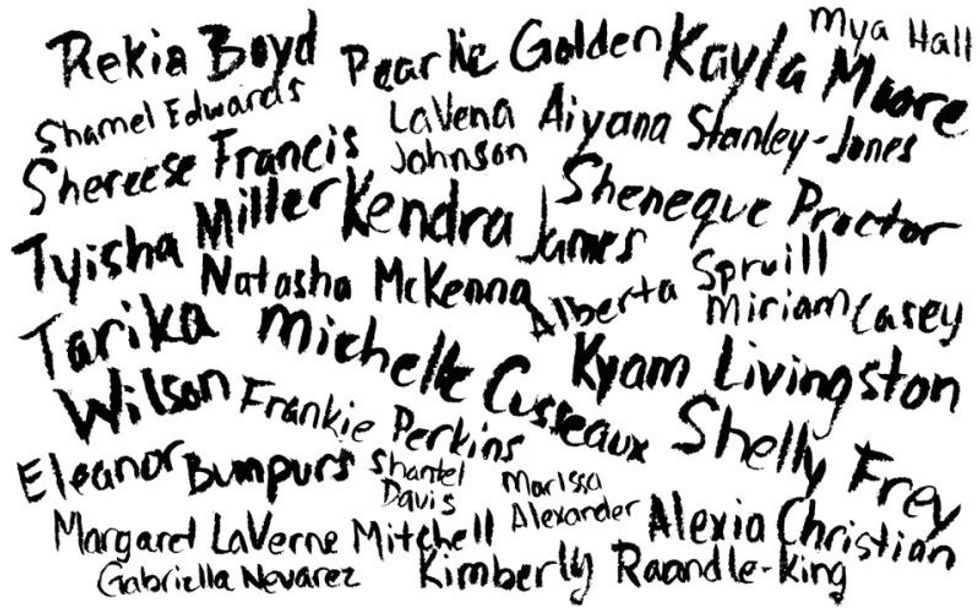 Mya Hall
Rekia Boyd
Pearlie Golden
Kayla Moore
Shamel Edwards
LaVena
Johnson
Aiyana Stanley-Jones
Shereese Francis
Sheneque Proctor
Tyisha Miller
Kendra James
Natasha McKenna
Alberta Spruill
Miriam Casey
Tarika
Wilson
Michelle Cusseaux
Kyam Livingston
Frankie Perkins
Shelly Frey
Eleanor Bumpurs
Shantel
Davis
Marissa
Alexander
Margaret LaVerne Mitchell
Alexia Christian
Gabriella Nevarez
Kimberly Raandle-King